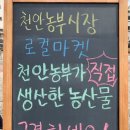 천안농부시장
로컬마켓
천안농부가 직접
생산한 농산물